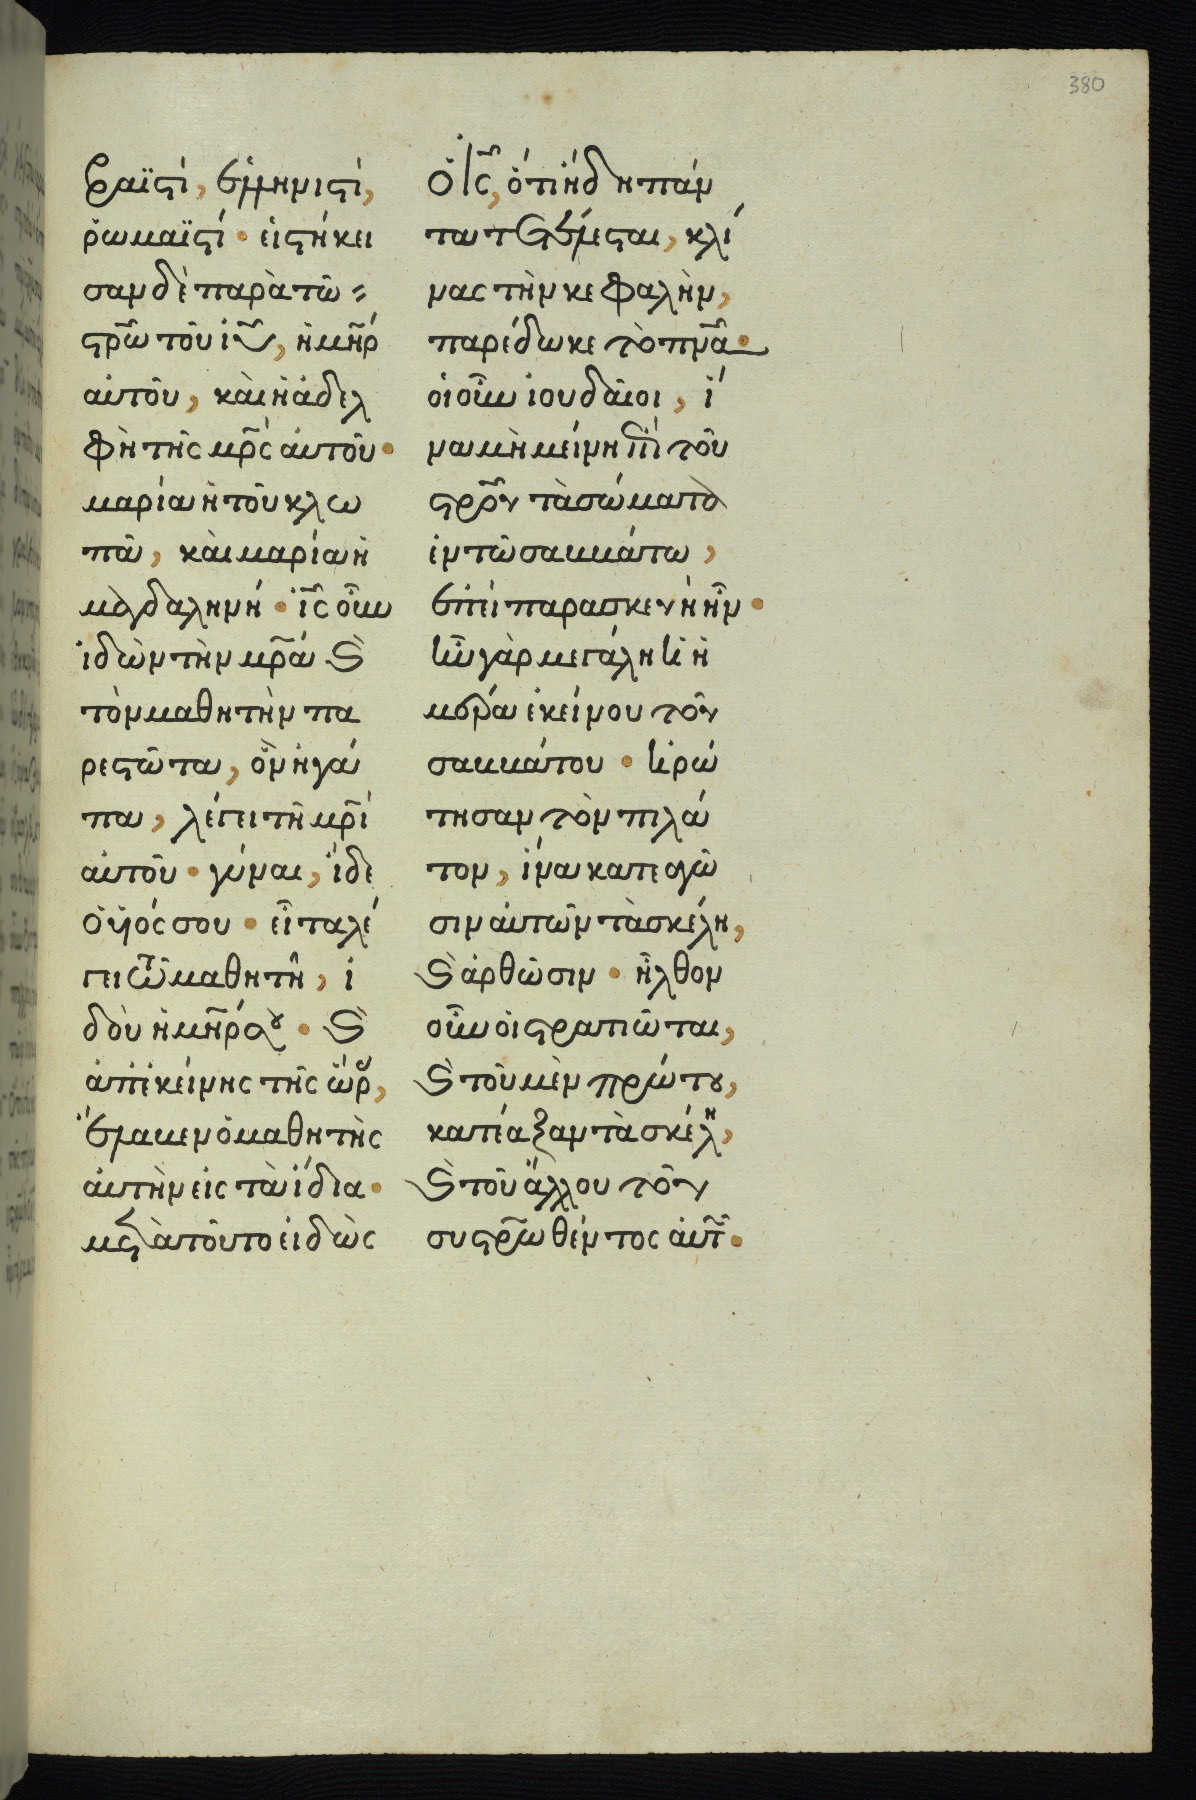 380
βραϊστί, ἑλληνιστί,
ῥωμαϊστί· εἱστήκει
σαν δὲ παρὰ τῶ
στρῶ τοῦ ἰῦ, ἡ μηρ
αὐτοῦ, καὶ ἡ ἀδελ
φὴ τῆς μρς αὐτοῦ·
μαρία ἡ τοῦ κλω
πᾶ, καὶ μαρία ἡ
μαγδαληνή· ἰς οὖν
ἰδὼν τὴν μρα καὶ
τὸν μαθητὴν πα
ρεστῶτα, ὃν ἠγά
πα, λέγει τῆ μρι
αὐτοῦ· γύναι, ἴδε
ὁ υἱός σου· εἶτα λέ
γει τῶ μαθητῆ, ἰ
δοὺ ἡ μηρ σου· καὶ
ἀπ' ἐκείνης τῆς ὥρ,
ἔλαβεν ὁ μαθητὴς
αὐτὴν εἰς τὰ ἴδια·
μετὰ τοῦτο εἰδὼς
ὁ ἰς, ὅτι ἤδη πάν
τα τετέλεσται, κλί
νας τὴν κεφαλὴν,
παρέδωκε τὸ πνα·
οἱ οὖν ἰουδαῖοι, ἵ
να μὴ μείνη ἐπὶ τοῦ
στρου τὰ σώματα
ἐν τῶ σαββάτω,
ἐπεὶ παρασκευὴ ἦν·
ἦν γὰρ μεγάλη ἡ ἡ
μέρα ἐκείνου τοῦ
σαββάτου· ἠρώ
τησαν τὸν πιλά
τον, ἵνα κατεαγῶ
σιν αὐτῶν τὰ σκέλη,
καὶ ἀρθῶσιν· ἦλθον
οὖν οἱ στρατιῶται,
καὶ τοῦ μὲν πρώτου,
κατέαξαν τὰ σκέλη,
καὶ τοῦ ἄλλου τοῦ
συστρωθέντος αὐτ·